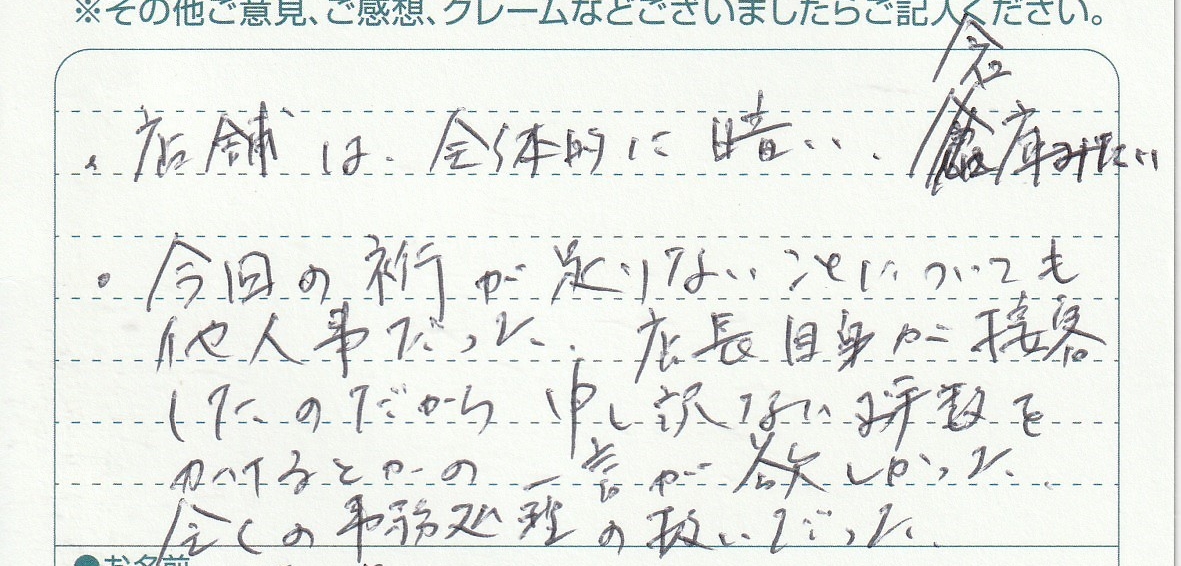 ※その他ご意見、ご感想、クレームなどございましたらご記入ください。
・店舗は、全体的に暗い、倉庫みたい
・今回の裄が足りないことについても
他人事だった。店長自身が接客
したのだから申し訳ないお手数を
かけるとかの一言が欲しかった。
全くの事務処理の扱いだった。
●お名前